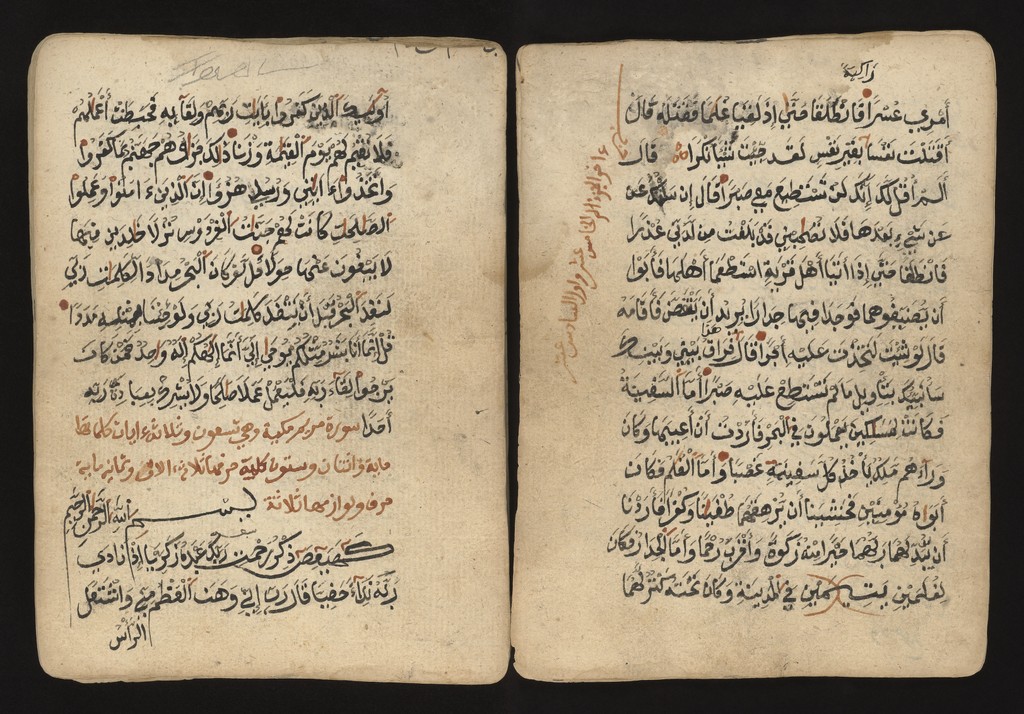 زاكية
أمري عسرا فانطلقا حتى إذ لقيا غلما فقتله قال
أقتلت نفسا بغير نفس لقد جئت شيئا نكرا قال
ألم أقل لك إنك لن تستطيع معي صبرا قال إن سألتك عن
عن شيء بعدها فلا تصحبني قد بلغت من لدني عذرا
فانطلقا حتى إذا أتيا أهل قرية استطعما أهلها فأبوا
أن يضيفوهما فوجدا فيها جدارا يريد أن ينقض فأقامه
قال لو شئت لتخذت عليه أجرا قال هذا فراق بيني وبينك
سأنبئك بتأويل ما لم تستطع عليه صبرا أما السفينة
فكانت لمسكين يعملون في البحر فأردت أن أعيبها وكان
وراءهم ملك يأخذ كل سفينة غصبا وأما الغلم فكان
أبواه مؤمنين فخشينا أن يرهقهما طغينا وكفرا فأردنا
أن يبدلهما ربهما خيرا منه زكوة وأقرب رحما وأما الجدار فكان
لغلمين يتيمين في المدينة وكان تحته كنز لهما
اخر الجزء الخامس عشر واول السادس عشر
أوليك الذين كفروا بايت ربهم ولقايه فحبطت أعملهم
فلا نقيم لهم يوم القيمة وزنا ذلك جزاؤهم جهنم بما كفروا
واتخذوا ءايتي ورسلي هزوا إن الذين ءامنوا وعملوا
الصلحت كانت لهم جنت الفردوس نزلا خلدين فيها
لا يبغون عنها حولا قل لو كان البحر مدادا لكلمت ربي
لنفد البحر قبل أن تنفد كلمت ربي ولو جئنا بمثله مددا
قل إنما أنا بشر مثلكم يوحى إلي أنما إلهكم إله واحد فمن كان
يرجوا لقاء ربه فليعمل عملا صلحا ولا يشرك بعبادة ربه
أحدا سورة مريم مكية وهي تسعون وثلاثة ءايات كلماتها
ماية واثنتان وستون كلمة حرفها ثلاثة ءالاف وثمانى ماية
حرف ولوازمها ثلاثة
بسم الله الرحمن الرحيم
كهيعص ذكر رحمت ربك عبده زكريا إذ نادى
ربه نداء خفيا قال رب إني وهن العظم مني واشتعل
الرأس